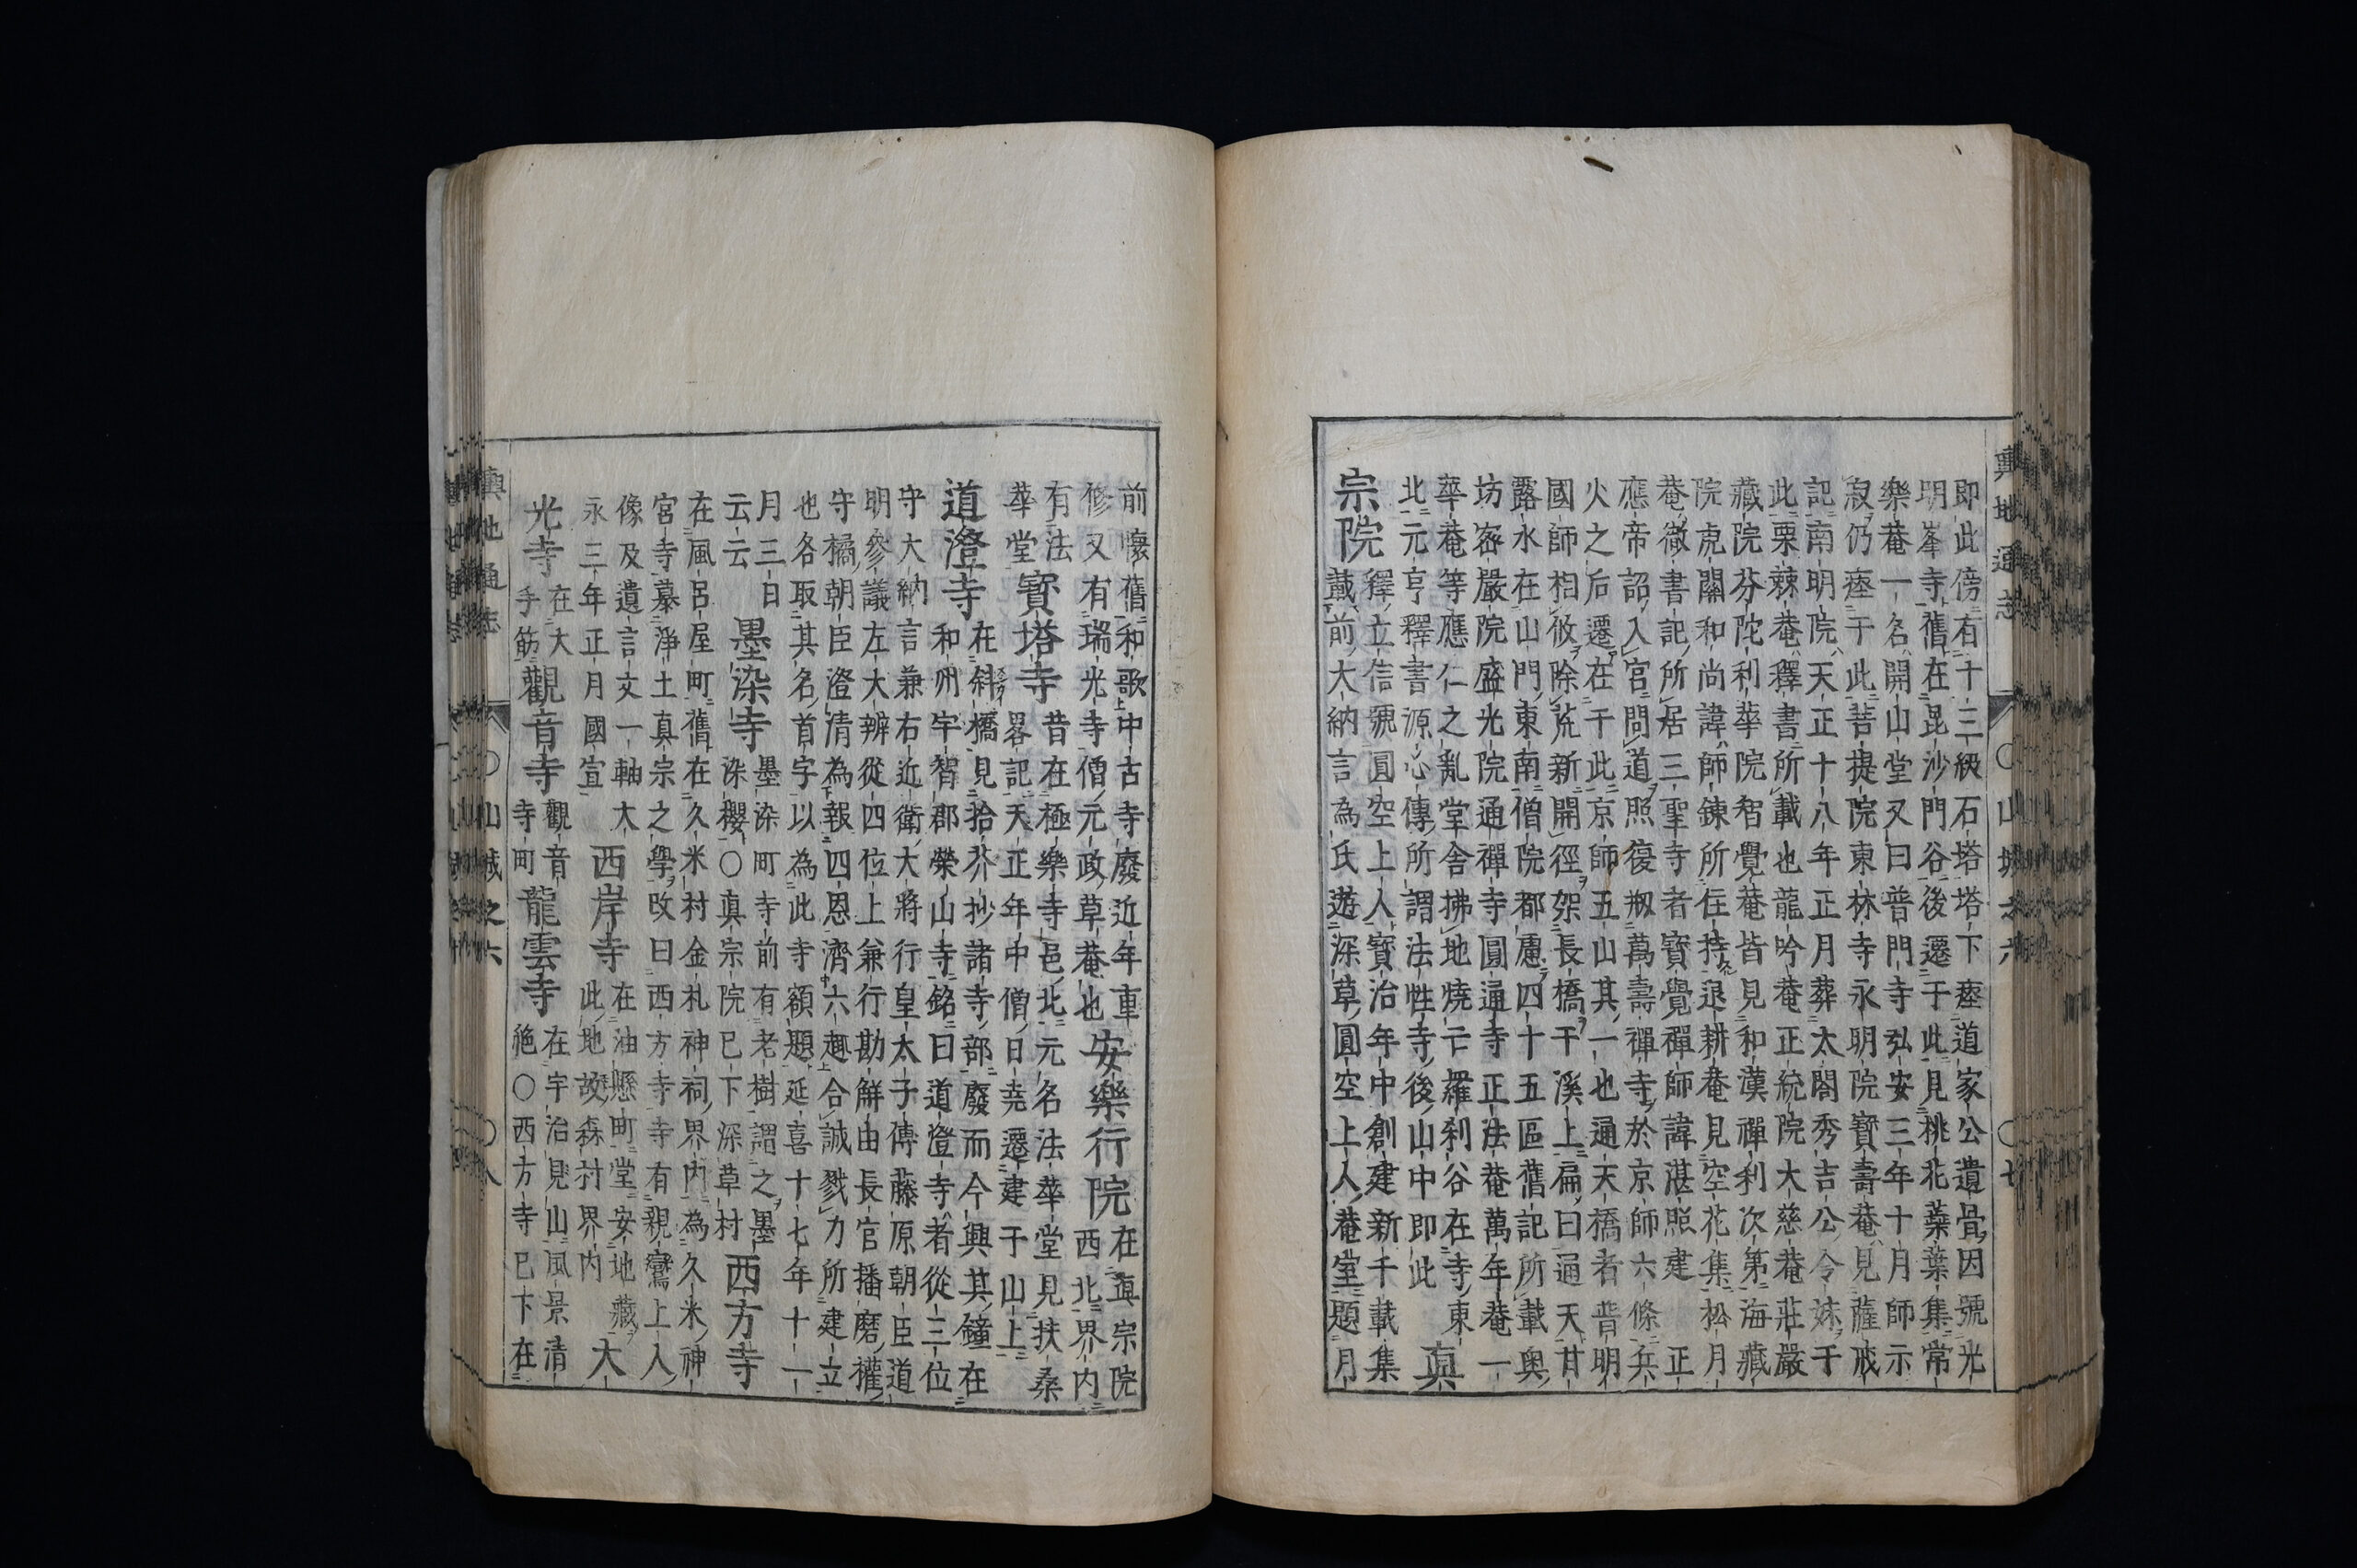 輿地通志 〇山城之六 〇七
即此傍有十三級石塔塔下瘞道家公遺骨因號光
明峯寺舊在毘沙門谷後遷于此見桃花蘂葉集常
樂菴一名開山堂又曰普門寺弘安三年十月師示
寂仍瘞于此菩提院東林寺永明院寶壽菴見薩戒
記南明院天正十八年正月葬太閤秀吉公令妹于
此栗棘菴釋書所載也龍吟菴正統院大慈菴莊嚴
藏院芬陀利華院智覺菴皆見和漢禪利次第海藏
院虎關和尚諱師鍊所住持退耕菴見空花集松月
菴徹書記所居三聖寺者寶覺禪師諱湛照建正
應帝詔入宮問道照復剏萬壽禪寺於京師六條兵
火之后遷在于此京師五山其一也通天橋者普明
國師相攸除荒新開徑架長橋于溪上扁曰通天甘
露水在山門東南僧院都慮四十五區舊記所載奧
坊密嚴院盛光院通禪寺圓通寺正法菴萬年菴一
華菴等應仁之亂堂舍拂地燒亡羅刹谷在寺東
北元亨釋書源心傳所謂法性寺後山中即此 真
宗院 釋立信號圓空上人寶治年中創建新千載集
載前大納言為氏遊深草圓空上人菴室題月
前懷舊和歌中古寺廢近年重
修又有瑞光寺僧元政草菴也 安樂行院 在真宗院
西北界內
有法
華堂 寶塔寺 昔在極樂寺邑北元名法華堂見扶桑
畧記天正年中僧日堯遷建于山上
道澄寺 在斜橋見拾芥抄諸寺部廢而今興其鐘在
和州宇智郡榮山寺銘曰道澄寺者從三位
守大納言兼右近衛大將行皇太子傅藤原朝臣道
明參議左大辨從四位上兼行勘解由長官播磨權
守橘朝臣澄清為報四恩濟六趣合誠戮力所建立
也各取其名首字以為此寺額題延喜十七年十一
月三日
云云 墨染寺 墨染町寺前有老樹謂之墨
染櫻〇真宗院已下深草村 西方寺
在風呂屋町舊在久米村金札神祠界內為久米神
宮寺墓淨土真宗之學改曰西方寺寺有親鸞上人
像及遺言文一軸大
永三年正月國宣 西岸寺 在油懸町堂安地藏
此地故森村界內 大
光寺 在大
手筋 觀音寺 觀音
寺町 龍雲寺 在宇治見山風景清
絶〇西方寺已下在
輿地通志 〇山城之六 〇八